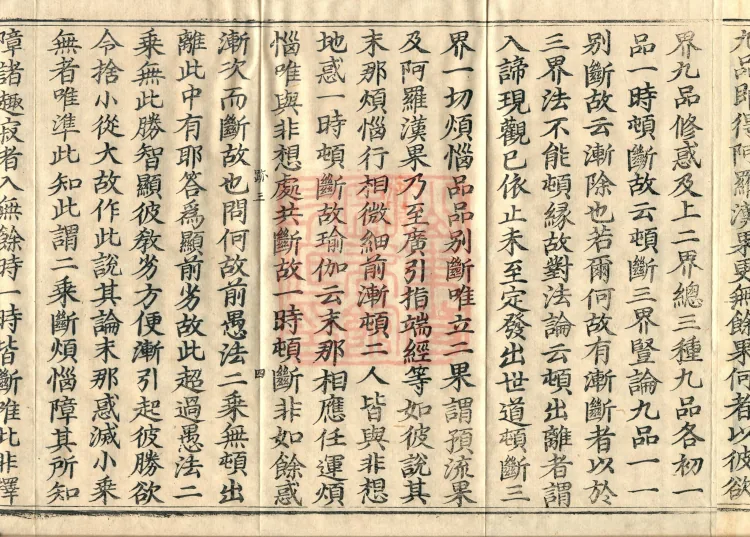 九品即得阿羅漢果更無餘果何者以彼欲
界九品修惑及上二界總三種九品各初一
品一時頓斷故云頓斷三界豎論九品一一
別斷故云漸除也若爾何故有漸斷者以於
三界法不能頓緣故對法論云頓出離者謂
入諦現觀已依止未至定發出世道頓斷三
界一切煩惱品品別斷唯立二果謂預流果
及阿羅漢果乃至廣引指端經等如彼說其
末那煩惱行相微細前漸頓二人皆與非想
地惑一時頓斷故瑜伽云末那相應任運煩
惱唯與非想處共斷故一時頓斷非如餘惑
跡三 四
漸次而斷故也問何故前愚法二乘無頓出
離此中有耶答為顯前劣故此超過愚法二
乘無此勝智顯彼教劣方便漸引起彼勝欲
令捨小從大故作此說其論末那惑滅小乘
無者唯準此知此謂二乘斷煩惱障其所知
障諸趣寂者入無餘時一時皆斷唯此非擇